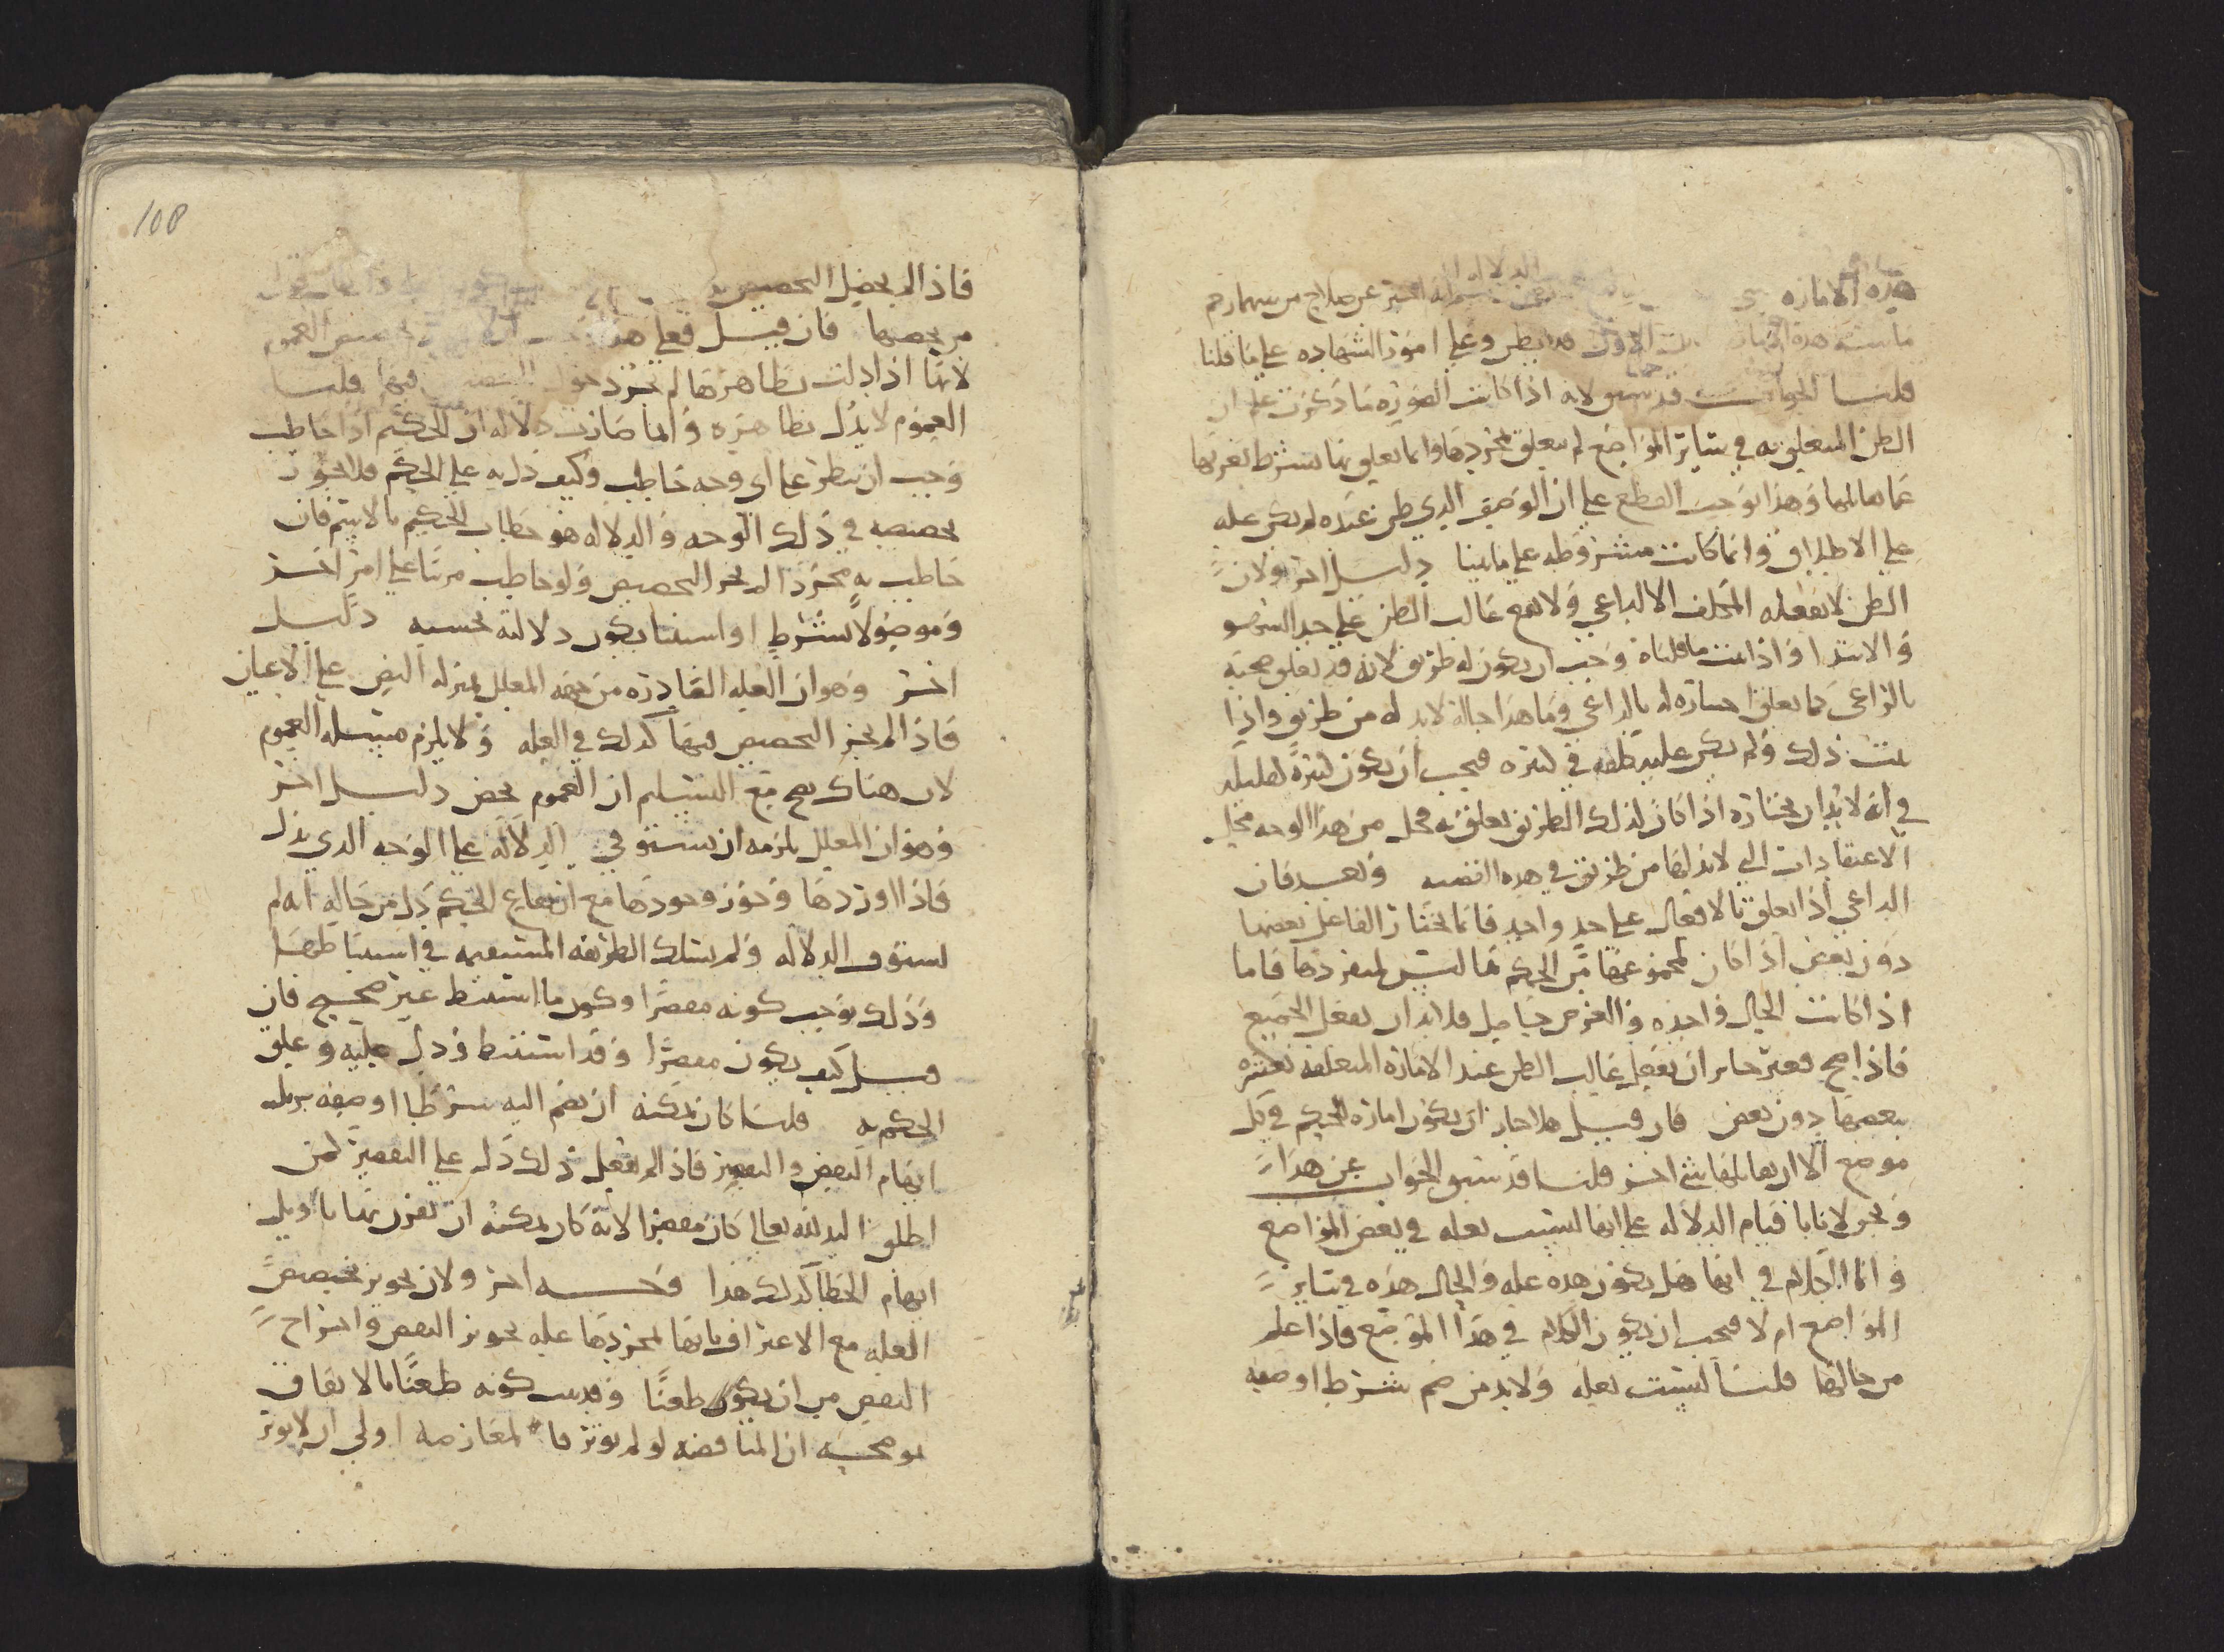 هذه الامارة
ما هذه على امور الشهادة على ما قلنا
قلنا الجواب قد سبق لانه اذا كانت الصورة ما ذكرت علم ان
الظن المتعلق به في سائر المواضع لم يتعلق بمجردها وانما تعلق بها بشرط تعريها
عما هالها وهذا يوجب القطع على ان الوصف الذي ظن عنده لم يكن علة
على الاطلاق وانما كانت مشروطة على ما بينا دليل اخر ولان
الظن لا يفعله المكلف الا لداعي ولا يقع غالب الظن على حد السهو
والابتدا واذا ثبت ما قلناه وجب ان يكون له طريق لانه قد تعلق صحته
بالداعي كما تعلق اختياره له بالداعي وما هذا حاله لابد له من طريق واذا
ثبت ذلك ولم يكن عليه كلفة في كثيره فيجب ان يكون كثيره كقليله
في انه لابد ان يختاره اذا كان لذلك الطريق تعلق به فحل من هذا الوجه محل
الاعتقادات التي لابد لها من طريق في هذه القضية وبعد فان
الداعي اذا تعلق بالافعال على حد واحد فانما يختار الفاعل بعضها
دون بعض اذا كان لمجموعها من الحكم ما ليس لمنفردها فاما
اذا كانت الحال واحدة والغرض حاصل فلابد ان يفعل الجميع
فاذا صح فغير جائز ان يفعل غالب الظن عند الامارة المتعلقة بغيره
ببعضها دون بعض فان قيل هلا جاز ان يكون امارة للحكم في كل
موضع الا ان يقابلها شي اخر قلنا قد سبق الجواب عن هذا
ونحن لا نابا قيام الدلالة على انها ليست بعلة في بعض المواضع
وانما الكلام في انها هل يكون هذه علة والحال هذه في سائر
المواضع ام لا فيجب ان يكون الكلام في هذا الموضع فاذا علم
من حالها قلنا ليست بعلة ولابد من ضم شرط او صفة
فاذا لم يحصل التخصيص
من تخصيصها فان قيل فعلى هذا تخصيص العموم
لانها اذا دلت بظاهرها لم يجز دخول التخصيص فيها قلنا
العموم لا يدل بظاهره وانما صارت دلالة ان الحكيم اذا خاطب
وجب ان ينظر على اي وجه خاطب وكيف دل به على الحكم فلا يجوز
تخصيصه في ذلك الوجه والدلالة هو خطاب الحكيم بالاسم فان
خاطب به مجردا لم يجز التخصيص ولو خاطب مرتبا على امر اخر
وموصولا بشرط او استثنا يكون دلالته بحسبه دليل
اخر وهو ان العلة الصادرة من جهة المعلل بمنزلة النص على الاعيان
فاذا لم يجز التخصيص فيها كذلك في العلة ولا يلزم مسئلة العموم
لان هناك يصح مع التسليم ان العموم يخص دليل اخر
وهو ان المعلل يلزمه ان يستوفي الدلالة على الوجه الذي يدل
فاذا اوردها وجوز وجودها مع ارتفاع الحكم دل من حاله انه لم
يستوف الدلالة ولم يسلك الطريقة المستقيمة في استنباطها
وذلك يوجب كونه مقصرا وكون ما استنبط غير صحيح فان
قيل كيف يكون مقصرا وقد استنبط ودل عليه وعلق
الحكم به قلنا كان يمكنه ان يضم اليه شرطا او صفة يزيل
ايهام النقض والتقصير فاذا لم يفعل ذلك دل على التقصير كمن
اطلق اليد لله تعالى كان مقصرا لانه كان يمكنه ان يقرن بها ما يزيل
ايهام الخطا كذلك هذا وجه اخر ولان تجويز تخصيص
العلة مع الاعتراف بانها بمجردها علة تجويز النقض واخراج
النقض من ان يكون طعنا وقد ثبت كونه طعنا بالاتفاق
يوضحه ان المناقضة لو لم يوثر فالمعارضة اولى ان لا يوثر
108